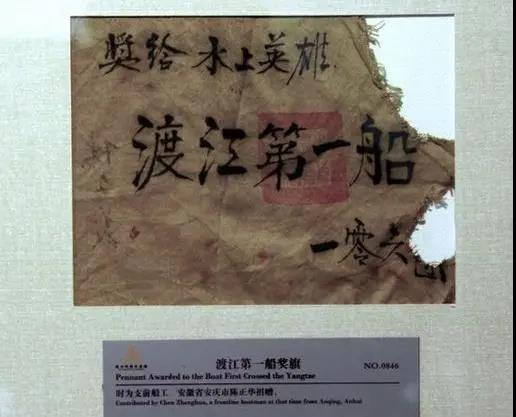 獎给 水上英雄
渡江第一船
一零六
渡江第一船奖旗
Pennant Awarded to the Boat First Crossed the Yangtze
NO.0846
时为支前船工 安徽省安庆市陈正华捐赠。
Contributed by Chen Zhenghua, a frontline boatman at that time from Anqing, Anhui